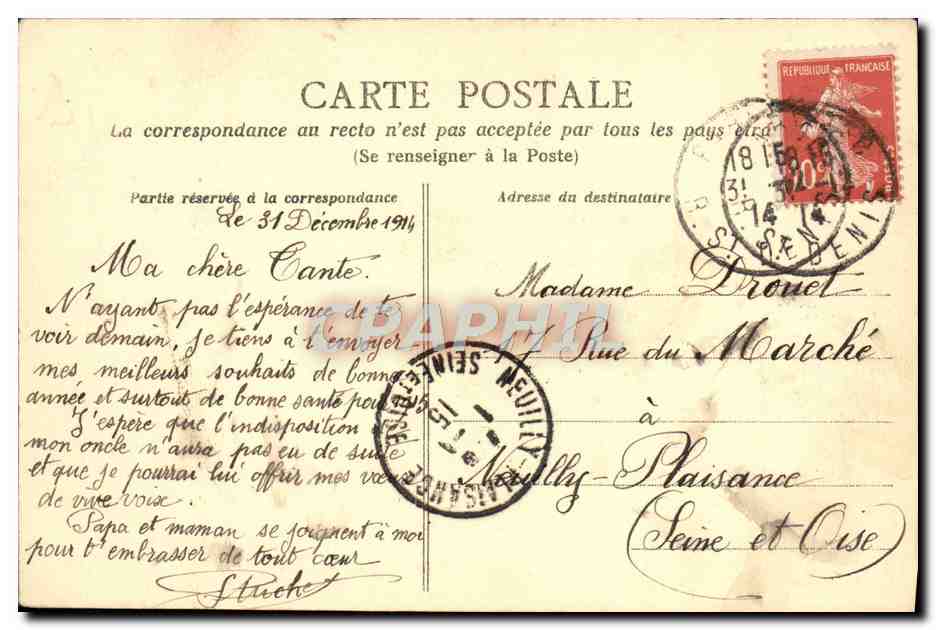 CARTE POSTALE
La correspondance au recto n'est pas acceptée par tous les pays étra
(Se renseigner à la Poste)
Partie réservée à la correspondance
Le 31 Décembre 1914
Ma chère Tante.
N'ayant pas l'espérance de te
voir demain, je tiens à t'envoyer
mes meilleurs souhaits de bonne
année et surtout de bonne santé pour
J'espère que l'indisposition
mon oncle n'aura pas eu de suite
et que je pourrai lui offrir mes vœux
de vive voix.
Papa et maman se joignent à moi
pour t'embrasser de tout cœur
Adresse du destinataire
Madame Drouet
Rue du Marché
à
Neuilly-Plaisance
(Seine et Oise)
REPUBLIQUE FRANÇAISE
18 15
31 - 12
14
ST DENIS
NEUILLY-PLAISANCE
SEINE ET OISE
1 - 1
15
CPAPHIL